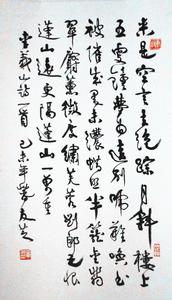 來是空言去絕踪月斜樓上
五更鐘夢为遠別啼難喚書
被催成墨未濃蠟照半籠金翡
翠麝薰微度繡芙蓉劉郎已恨
蓬山遠更隔蓬山一萬重
李義山詩一首 己未年